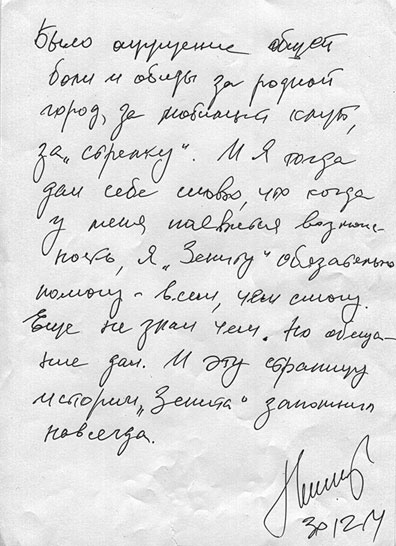 Было ощущение общей
боли и обиды за родной
город, за любимый клуб,
за „стрелку“. И я тогда
дал себе слово, что когда
у меня появится возмож-
ность, я „Зениту“ обязательно
помогу - всем, чем смогу.
Еще не знал чем. Но обеща-
ние дал. И эту страницу
истории „Зенита“ запомнил
навсегда.
30/12/14